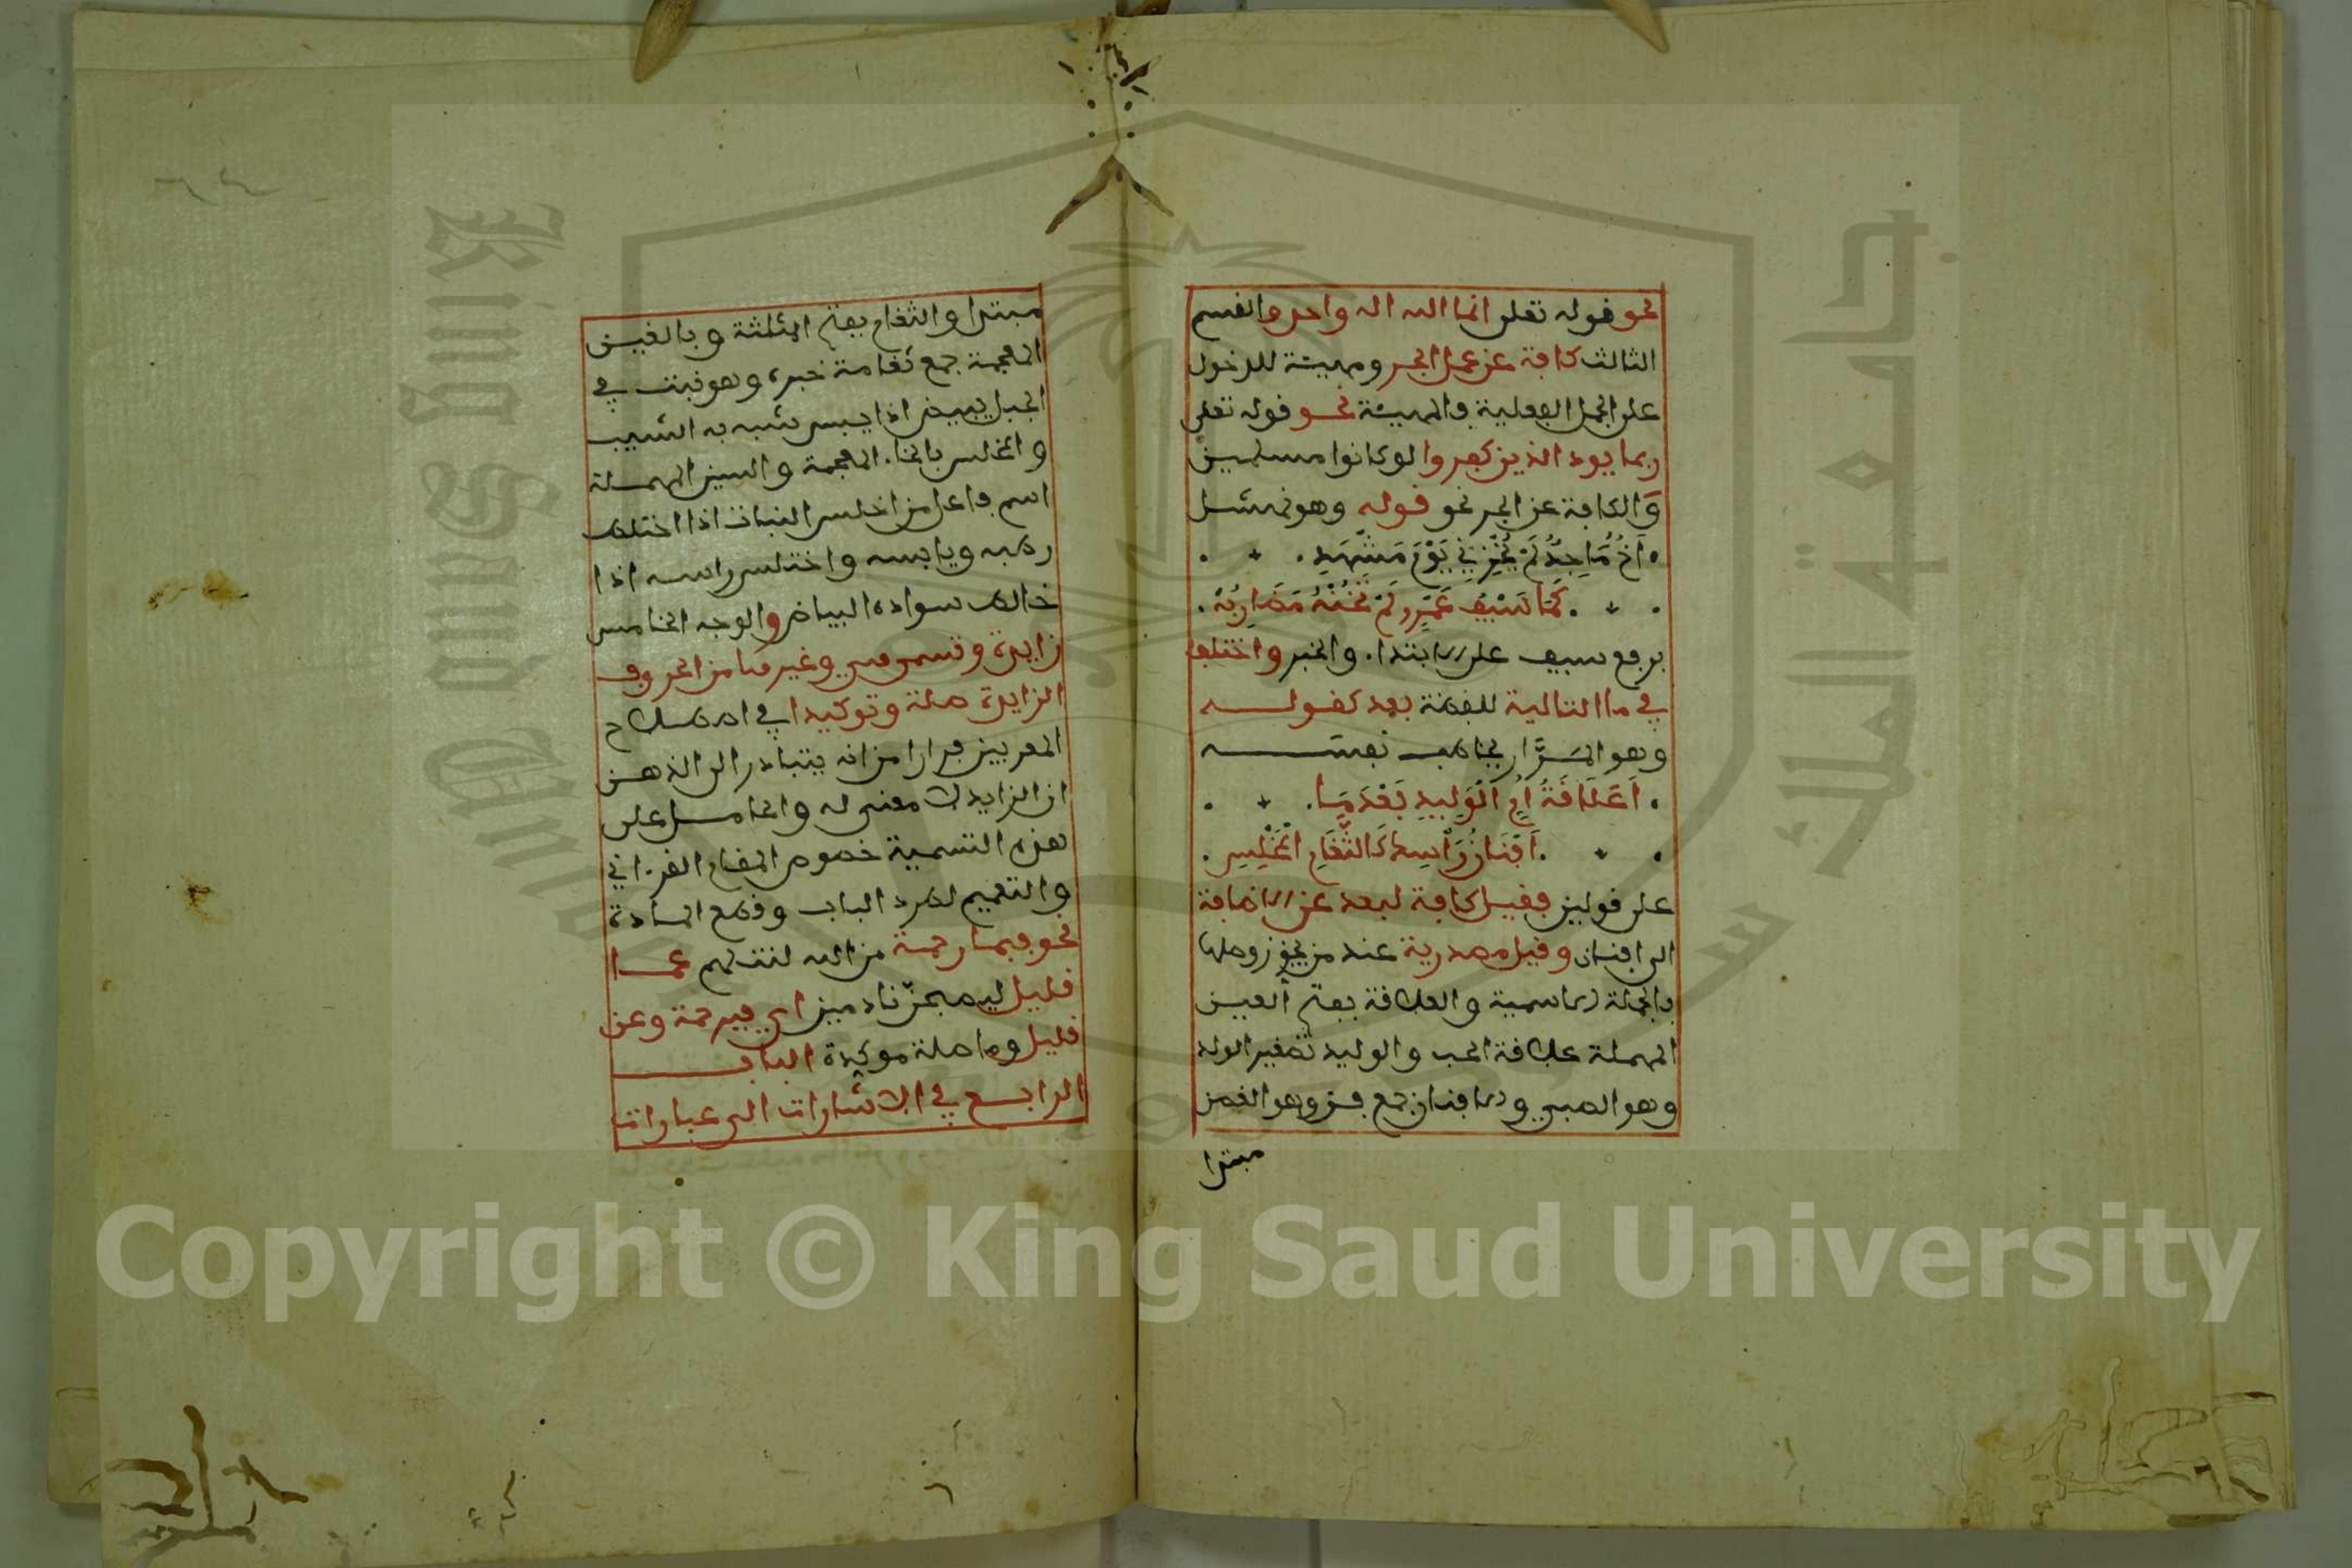 نحو قوله تعلى انما الله اله واحد والقسم
الثالث كافة عن عمل الجر ومهيئة للدخول
على الجمل الفعلية والمهيئة نحو قوله تعلى
ربما يود الذين كفروا لو كانوا مسلمين
والكافة عن الجر نحو قوله وهو نهشل
أخ ماجد لم يخزني يوم مشهد
كما سيف عمرو لم تخنه مضاربه
برفع سيف على الابتداء والخبر واختلف
في ما التالية للفظة بعد كقوله
وهو المرار يخاطب نفسه
أعلاقة أم الوليد بعدما
أفنان رأسك كالثغام المخلس
على قولين فقيل كافة لبعد عن الاضافة
الى افنان وقيل مصدرية عند من يجوز وصلها
بالجملة الاسمية والعلاقة بفتح العين
المهملة علاقة الحب والوليد تصغير الولد
وهو الصبي والافنان جمع فنن وهو الغصن
مبتدا
مبتدا والثغام بفتح المثلثة وبالغين
المعجمة جمع ثغامة خبره وهو نبت في
الجبل يبيض اذا يبس شبه به الشيب
والمخلس بالخاء المعجمة والسين المهملة
اسم فاعل من اخلس النبات اذا اختلط
رطبه ويابسه واختلس راسه اذا
خالط سواده البياض والوجه الخامس
زايدة وتسمى هي وغيرها من الحروف
الزايدة صلة وتوكيدا في اصطلاح
المعربين فرارا من انه يتبادر الى الذهن
ان الزايد لا معنى له والحامل على
هذه التسمية خصوص المقام القرءاني
والتعميم لطرد الباب وقطع المادة
نحو فبما رحمة من الله لنت لهم عما
قليل ليصبحن نادمين اي فبرحمة وعن
قليل وما صلة موكدة الباب
الرابع في الاشارات الى عبارات
Copyright © King Saud University